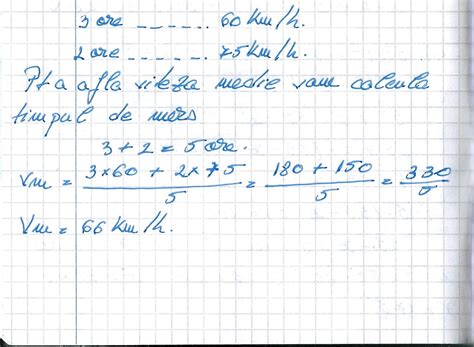 3 ore ....... 60 km/h.
2 ore ....... 75 km/h.
Pt a afla viteza medie vom calcula
timpul de mers
3 + 2 = 5 ore.
Vm = (3x60 + 2x75)/5 = (180 + 150)/5 = 330/5
Vm = 66 km/h.